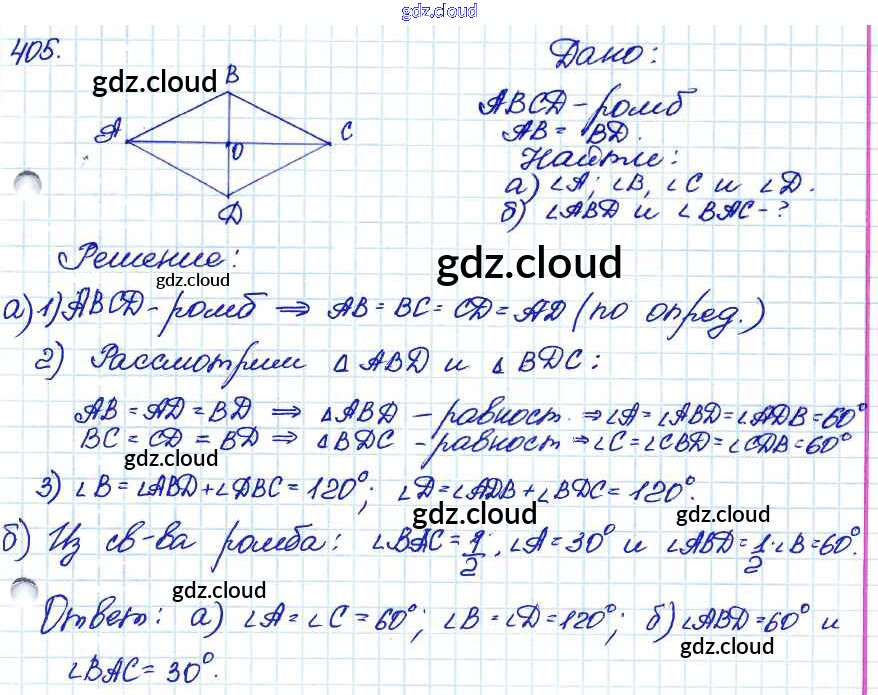 gdz.cloud
405.
Дано:
gdz.cloud
B
A
C
O
D
ABCD - ромб
AB = BD.
Найти:
а) ∠A; ∠B, ∠C и ∠D.
б) ∠ABD и ∠BAC - ?
Решение:
gdz.cloud
gdz.cloud
а) 1) ABCD - ромб ⇒ AB = BC = CD = AD (по опред.)
2) Рассмотрим △ABD и △BDC:
AB = AD = BD ⇒ △ABD - равност. ⇒ ∠A = ∠ABD = ∠ADB = 60°
BC = CD = BD ⇒ △BDC - равност ⇒ ∠C = ∠CBD = ∠CDB = 60°
gdz.cloud
3) ∠B = ∠ABD + ∠DBC = 120°; ∠D = ∠ADB + ∠BDC = 120°.
gdz.cloud
gdz.cloud
б) Из св-ва ромба: ∠BAC = 1/2 · ∠A = 30° и ∠ABD = 1/2 · ∠B = 60°.
gdz.cloud
Ответ: а) ∠A = ∠C = 60°; ∠B = ∠D = 120°; б) ∠ABD = 60° и
gdz.cloud
∠BAC = 30°.